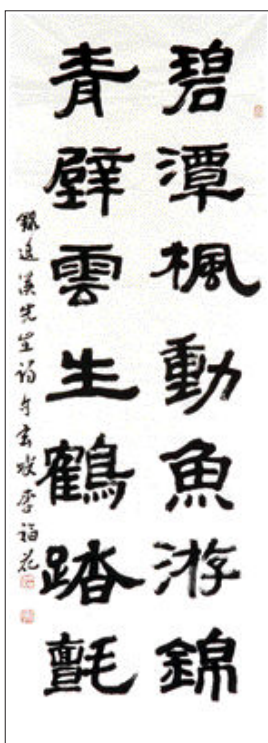 碧潭楓動魚游錦
青壁雲生鶴踏氈
錄退溪先生詩句玄坡李福花